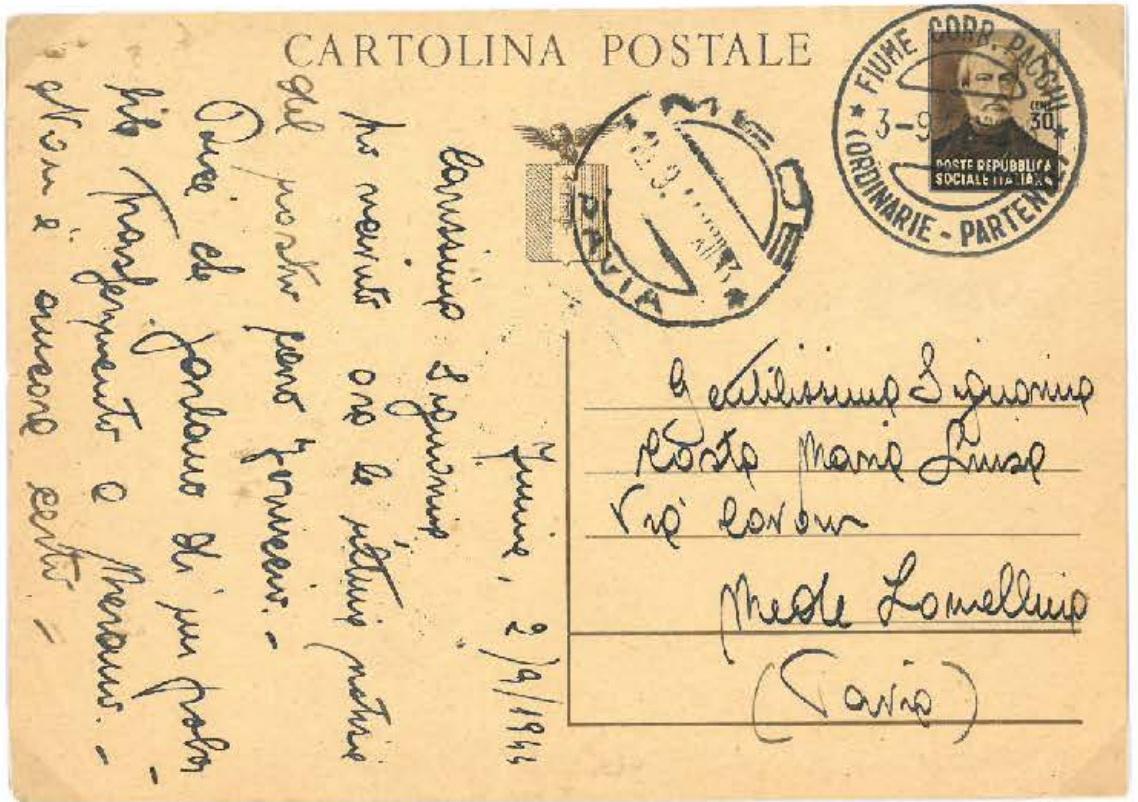 CARTOLINA POSTALE
FIUME CORR. PACCHI
3-9
(ORDINARIE - PARTENZA)
CENT. 30
POSTE REPUBBLICA
SOCIALE ITALIANA
MEDE
PAVIA
Gentilissima Signorina
Costa Maria Luisa
Via Cavour
Mede Lomellina
(Pavia)
Fiume, 2/9/1944
Carissima Signorina
ho ricevuto ora le ultime notizie
del nostro caro
Dice che parlano di un proba-
bile trasferimento a Merano. -
Non è ancora certo -